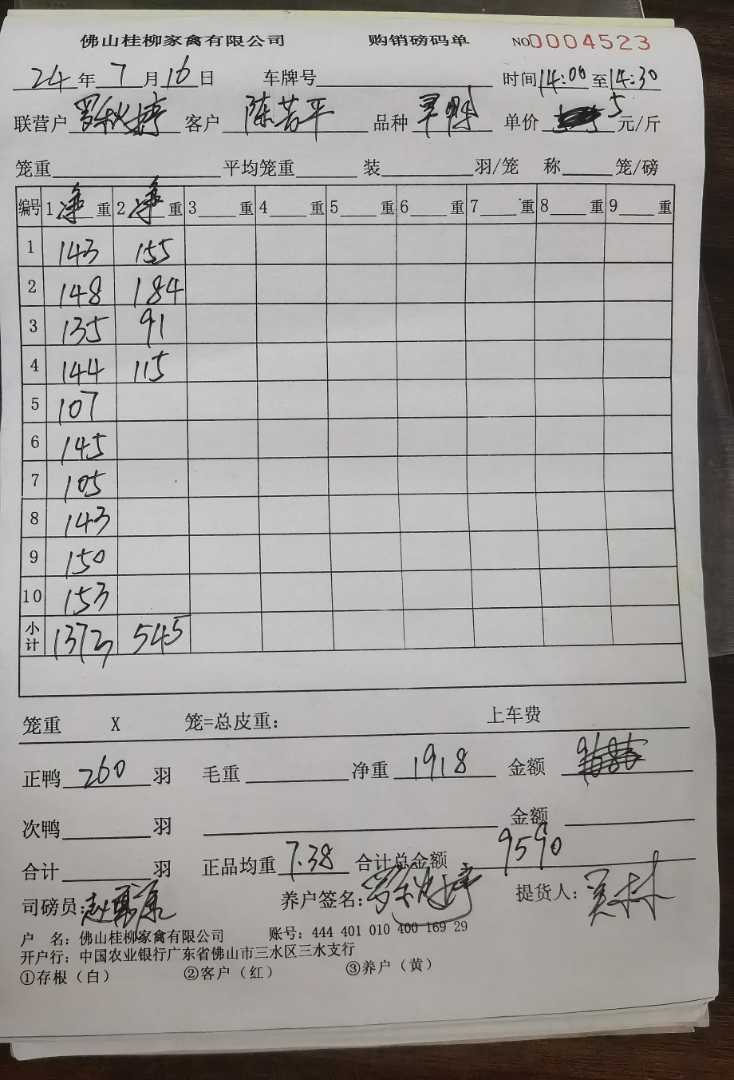 佛山桂柳家禽有限公司 购销磅码单 NO0004523
24年7月16日 车牌号 时间14:00至14:30
联营户 罗秋婷 客户 陈苦平 品种 单价 5元/斤
笼重 平均笼重 装 羽/笼 称 笼/磅
编号 1净重 2净重 3重 4重 5重 6重 7重 8重 9重
1 143 155
2 148 184
3 135 91
4 144 115
5 107
6 145
7 105
8 143
9 150
10 153
小计 1373 545
笼重 X 笼=总皮重: 上车费
正鸭 260 羽 毛重 净重 1918 金额
次鸭 羽 金额
合计 羽 正品均重 7.38 合计总金额 9590
司磅员: 养户签名: 罗秋婷 提货人:
户 名: 佛山桂柳家禽有限公司 账号: 444 401 010 400 169 29
开户行: 中国农业银行广东省佛山市三水区三水支行
①存根(白) ②客户(红) ③养户(黄)